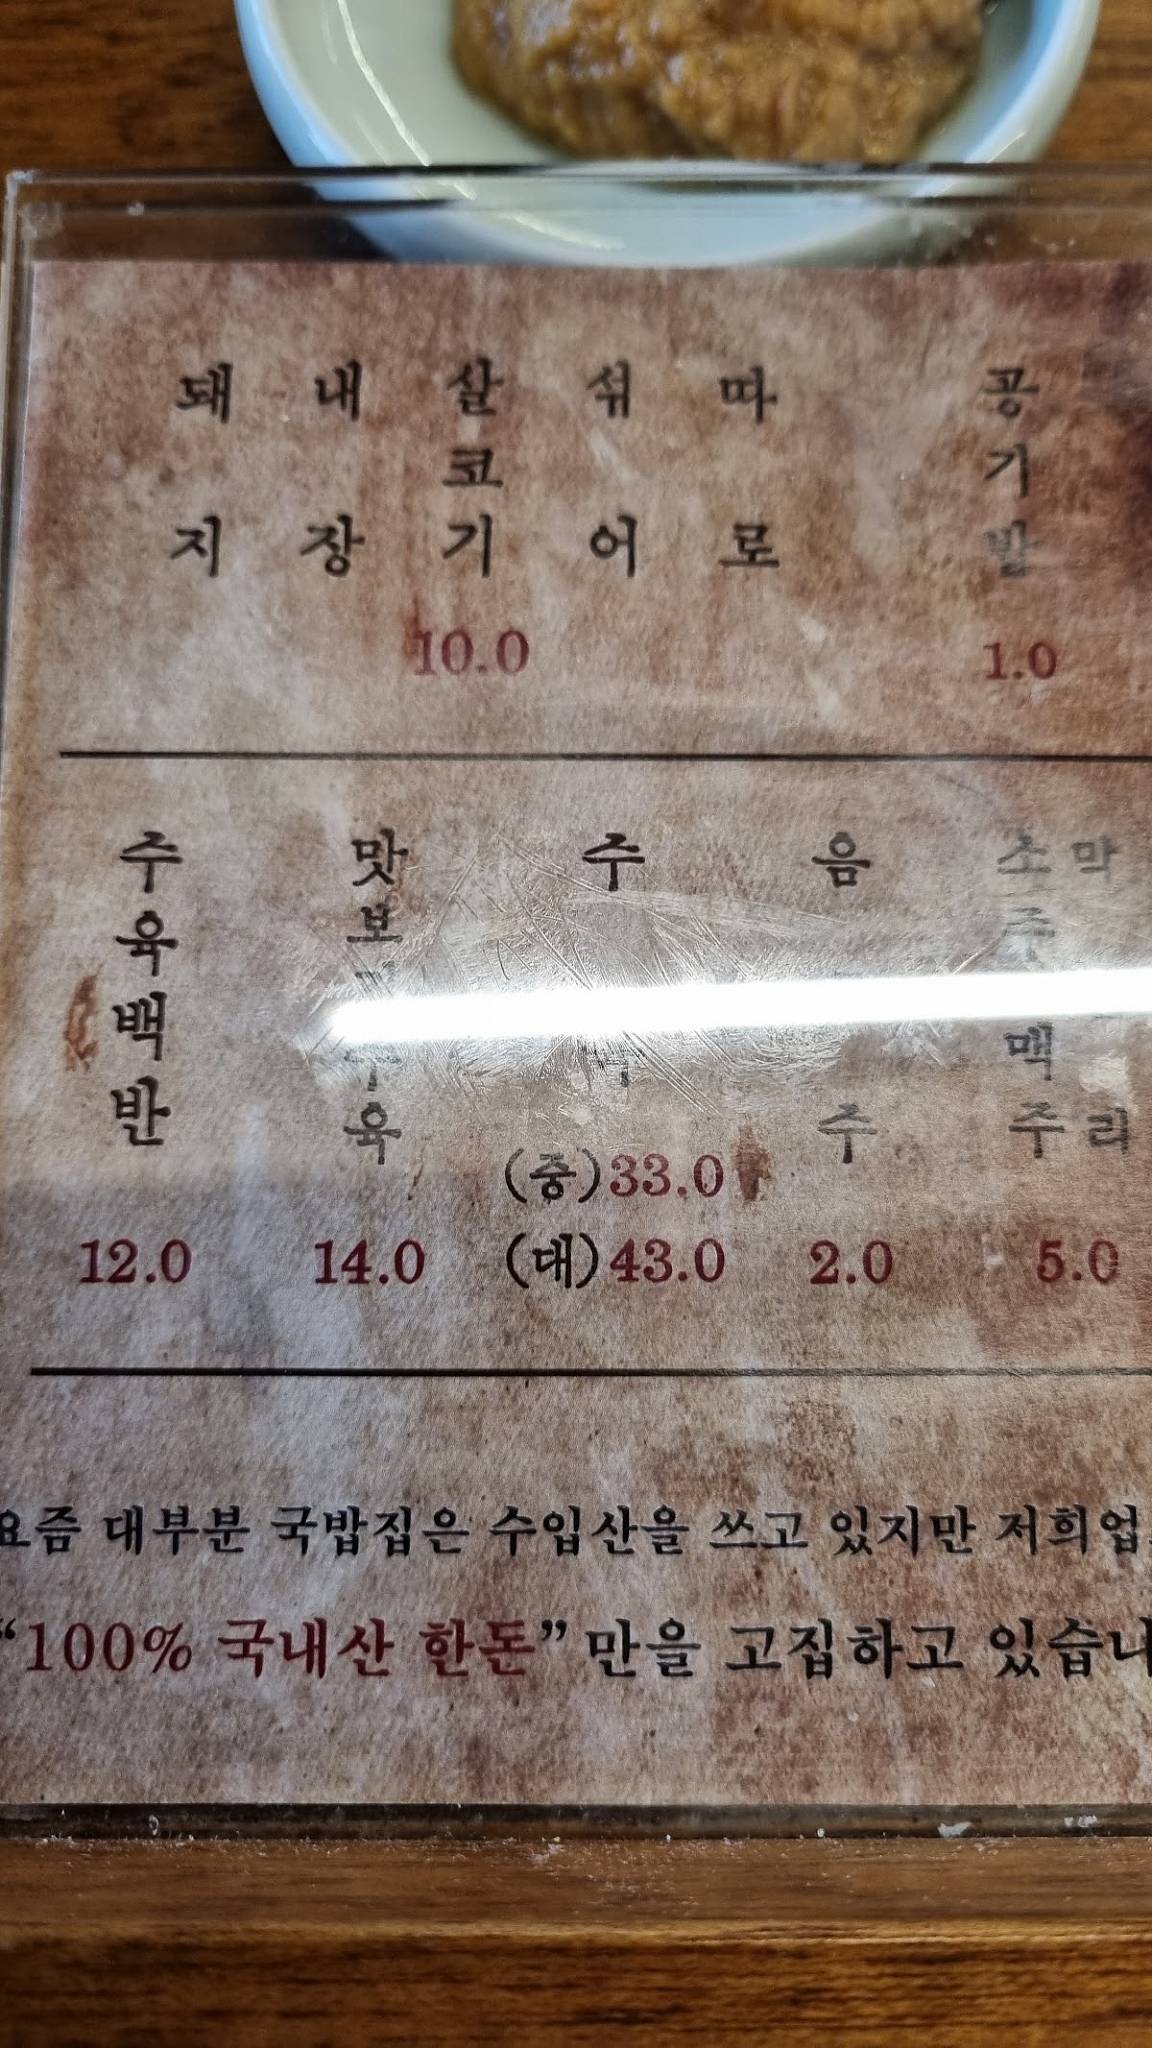 돼지
내장
살코기
섞어
따로
10.0
공기밥
1.0
주육백반
12.0
맛보
육
14.0
(중)33.0
(대)43.0
음
주
2.0
소주
맥주
막
리
5.0
요즘 대부분 국밥집은 수입산을 쓰고 있지만 저희업
“100% 국내산 한돈” 만을 고집하고 있습니